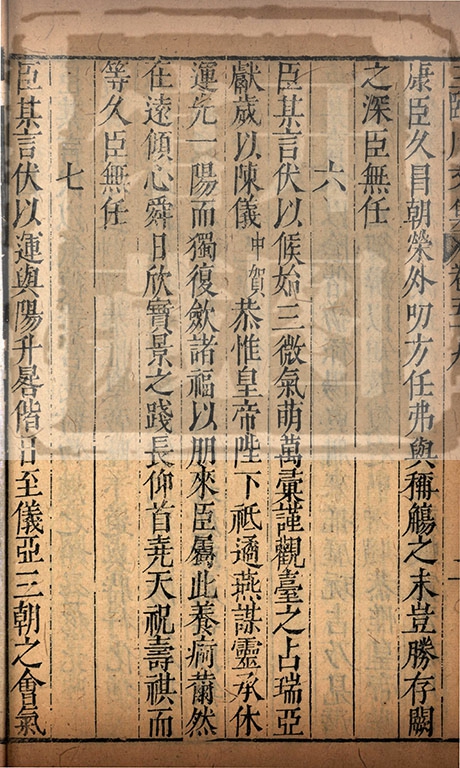 康臣久冒朝榮外叨方任弗與稱觴之末豈勝存闕
之深臣無任
六
臣某言伏以候始三微氣萌萬彙謹觀臺之占瑞亞
獻歲以陳儀中賀恭惟皇帝陛下祗遹燕謀靈承休
運先一陽而獨復歛諸福以朋來臣屬此養痾薾然
在遠傾心舜日欣實景之踐長仰首堯天祝壽祺而
等久臣無任
七
臣某言伏以運與陽升晷偕日至儀亞三朝之會氣